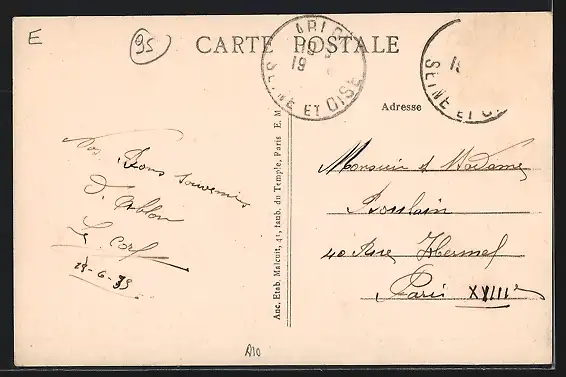 E
95
CARTE POSTALE
ABLON
19
SEINE ET OISE
SEINE ET OISE
Adresse
Nos Bons Souvenirs
d'Ablon
18-6-39
Anc. Etab. Malcuit, 41, faub. du Temple, Paris E. M
Monsieur & Madame
Boulain
40 Rue Hermel
Paris XVIIIe
A10